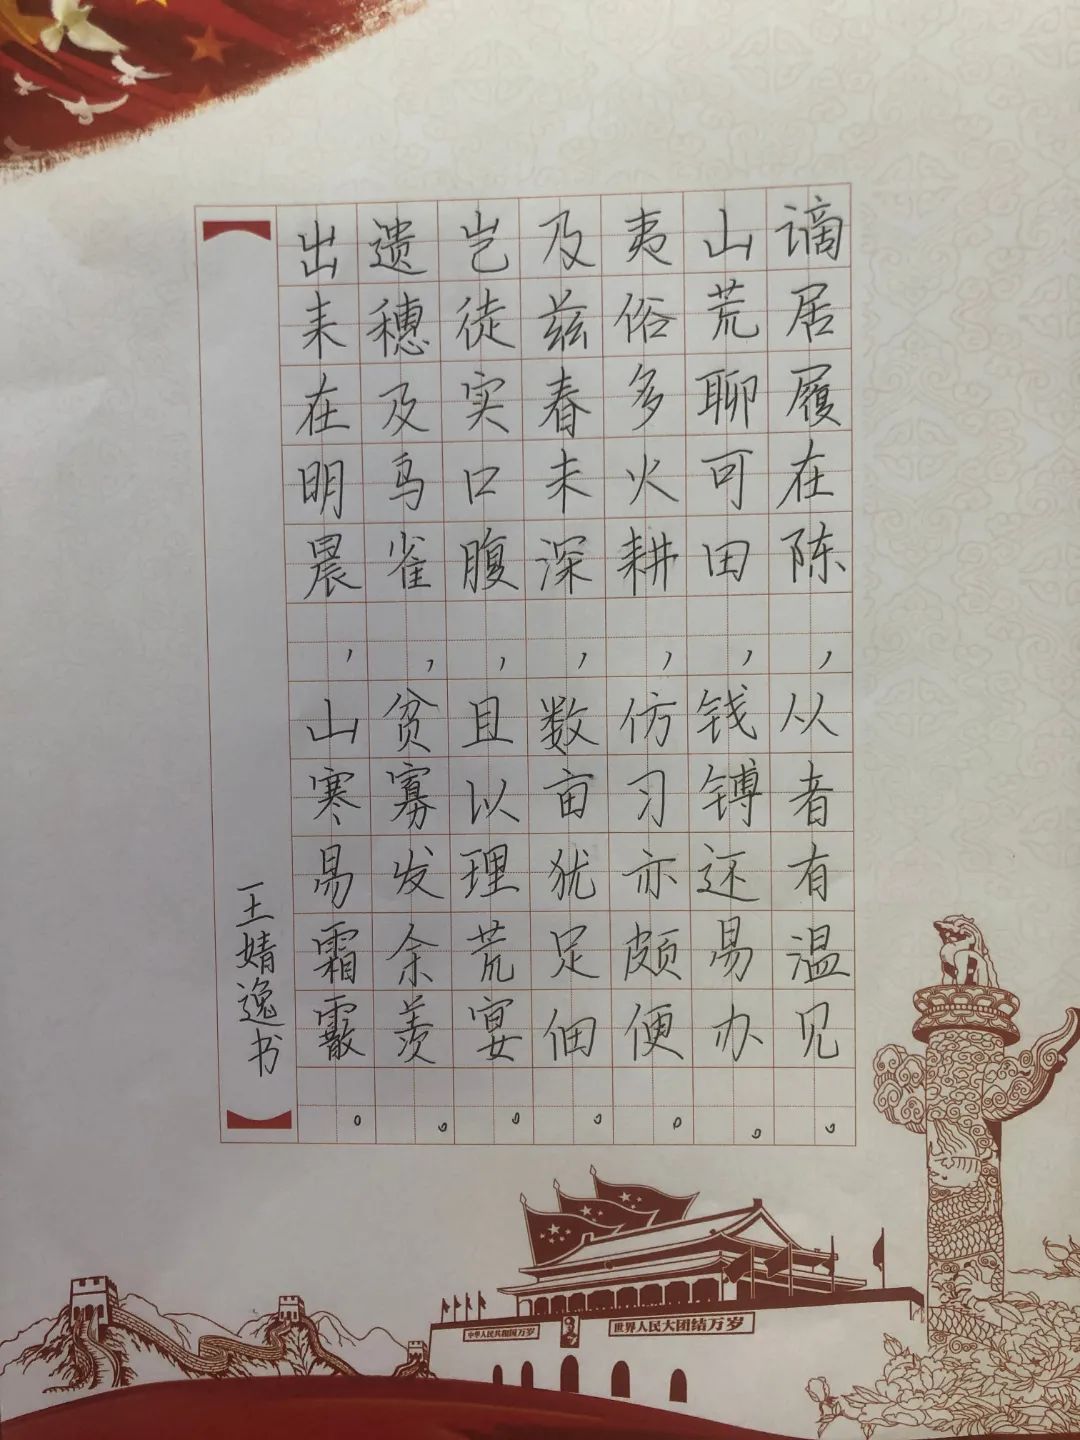 谪居履在陈，从者有温见。
山荒聊可田，钱镈还易办。
夷俗多火耕，仿习亦颇便。
及兹春未深，数亩犹足佃。
岂徒实口腹，且以理荒宴。
遗穗及鸟雀，贫寡发余羡。
出耒在明晨，山寒易霜霰。
王婧逸书
中华人民共和国万岁
世界人民大团结万岁